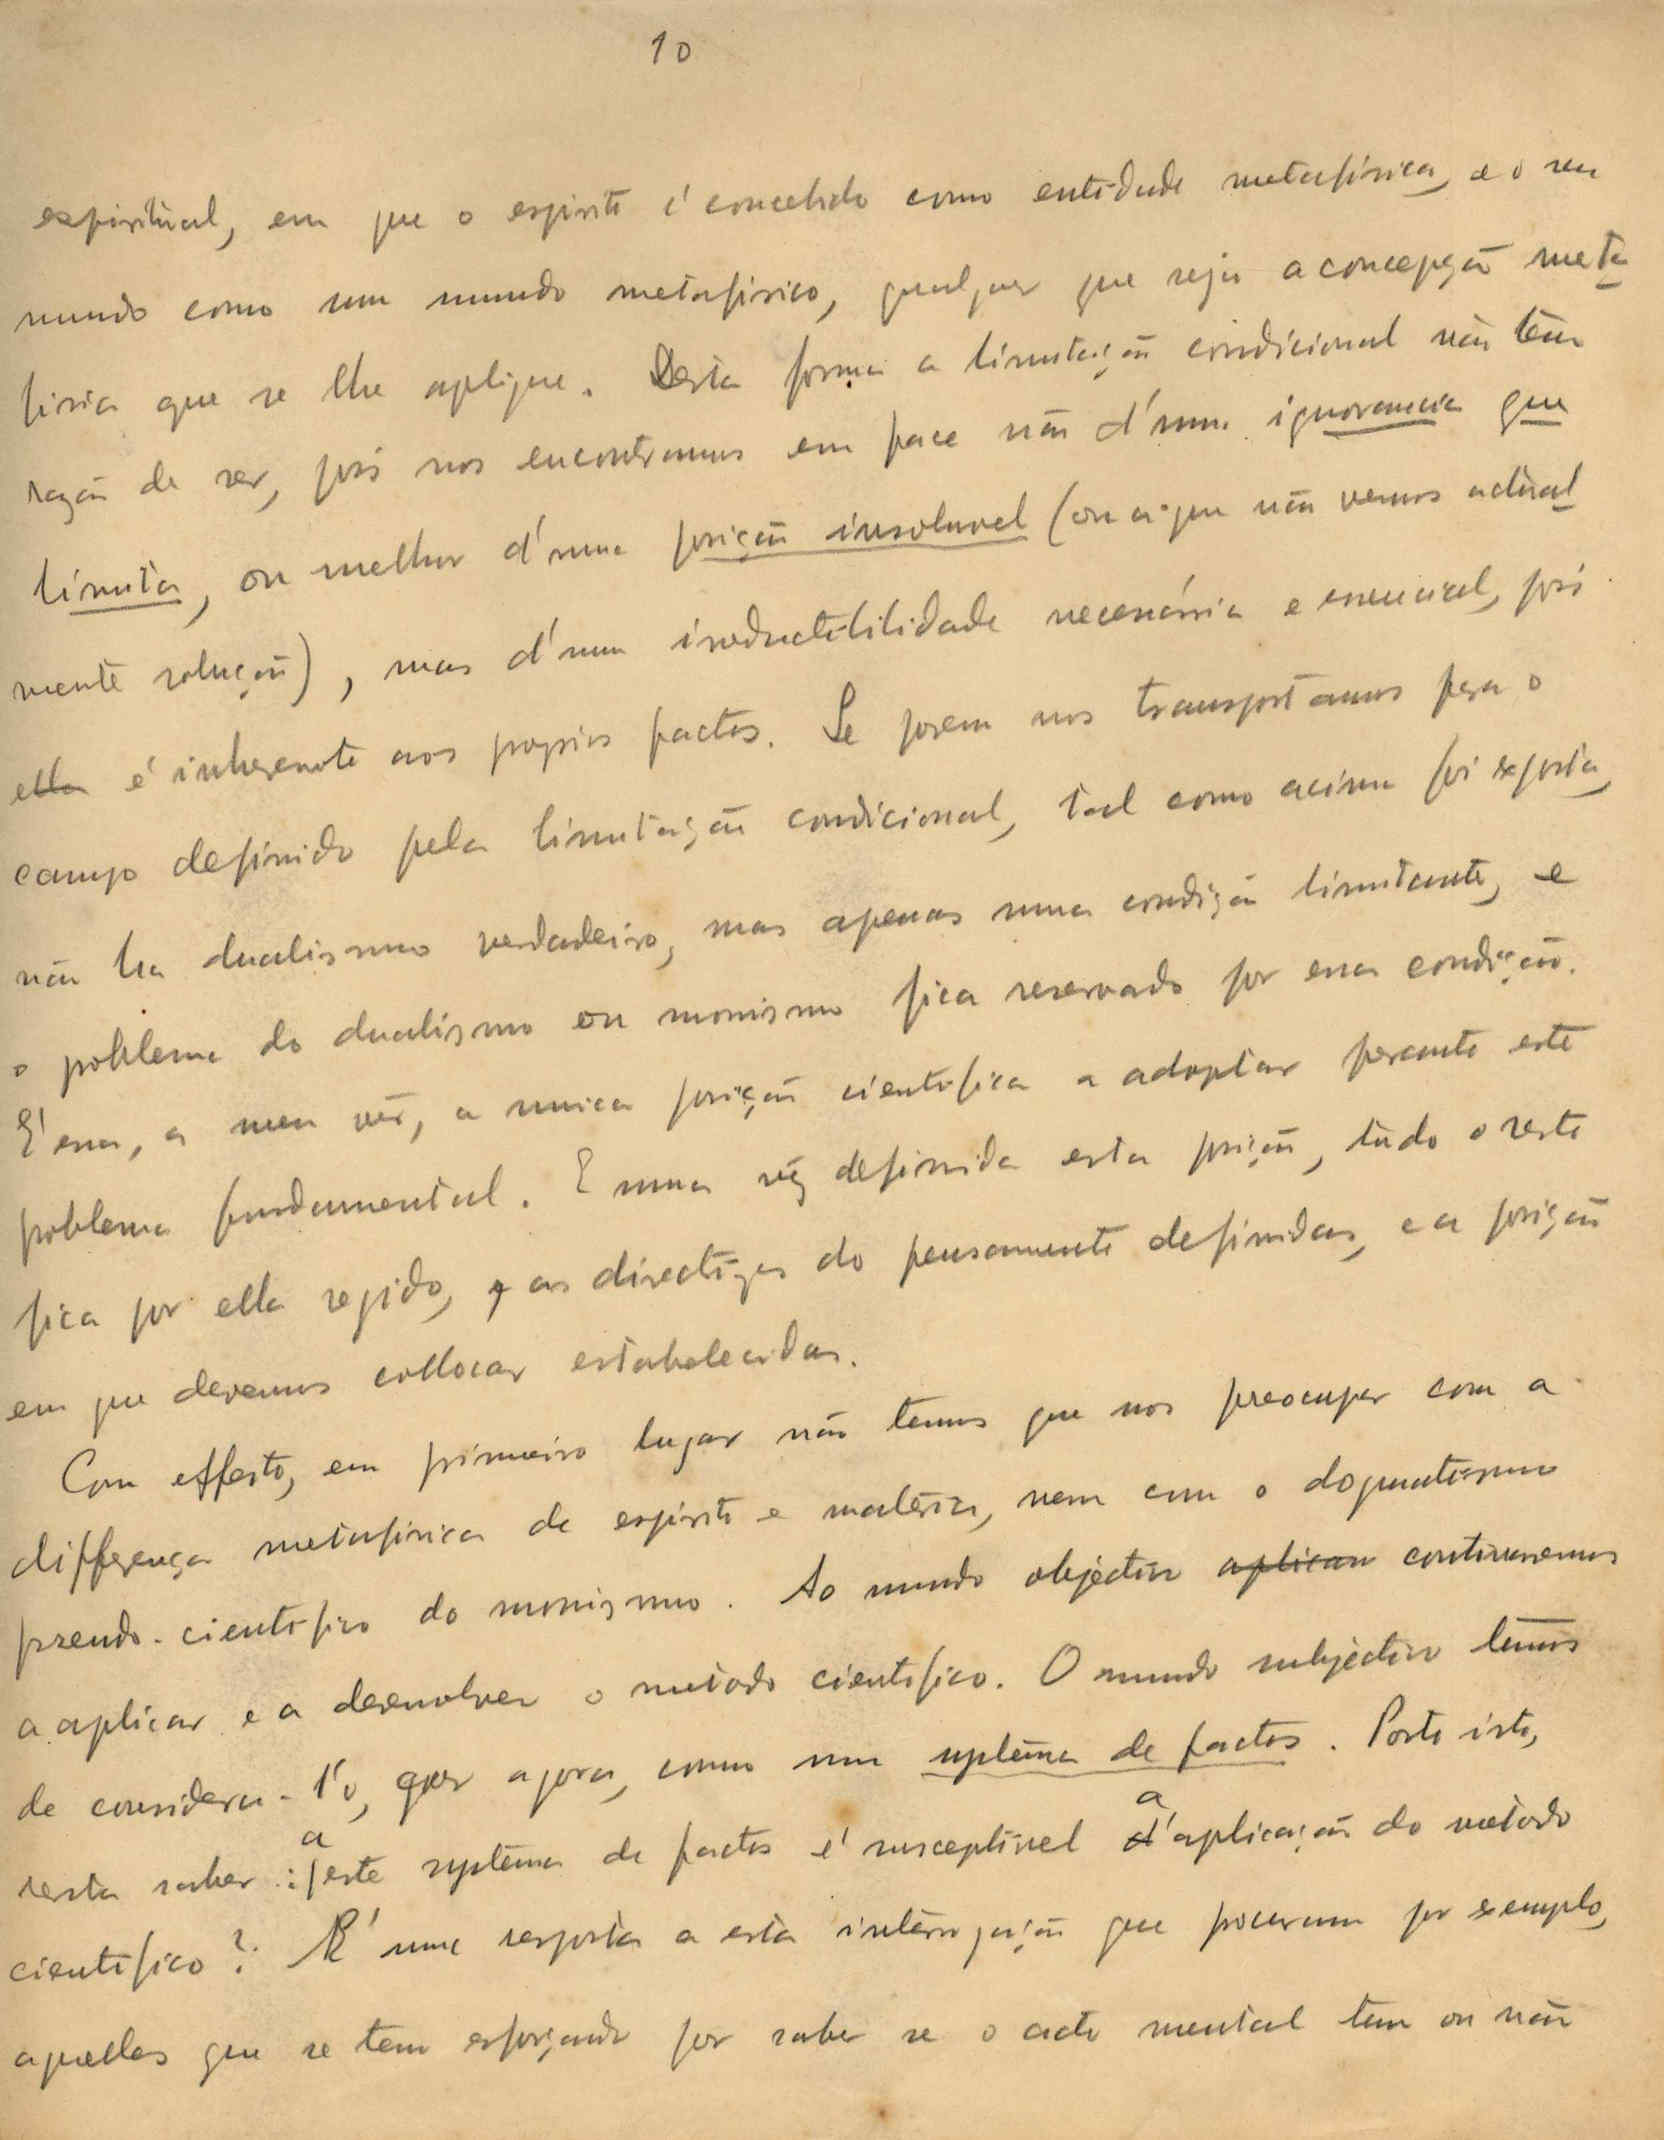 10
espiritual, em que o espirito é concebido como entidade metafisica, e o seu
mundo como um mundo metafisico, qualquer que seja a concepção meta
fisica que se lhe aplique. Desta forma a limitação condicional não tem
razão de ser, pois nos encontramos em face não d'uma ignorancia que
limita, ou melhor d'uma posição insoluvel (ou a que não vemos actual
mente solução), mas d'uma irreductibilidade necessária e essencial, pois
ella é inherente aos proprios factos. Se porem nos transportamos para o
campo definido pela limitação condicional, tal como acima foi exposta,
não ha dualismo verdadeiro, mas apenas uma condição limitante, e
o poblema do dualismo ou monismo fica reservado por essa condição.
É essa, a meu vêr, a unica posição cientifica a adoptar perante este
poblema fundamental. E uma vêz definida esta posição, tudo o resto
fica por ella regido, as directizes do pensamento definidas, e a posição
em que devemos collocar estabelecidas.
Com effeito, em primeiro lugar não temos que nos preocupar com a
differença metafisica de espirito e matéria, nem com o dogmatismo
pseudo-cientifico do monismo. Ao mundo objectivo aplicam continuaremos
a aplicar e a desenvolver o metodo cientifico. O mundo subjectivo temos
de considera-l'o, por agora, como um systema de factos. Posto isto,
resta saber: este systema de factos é susceptivel d'aplicação do metodo
a a
cientifico? É uma resposta a esta interrogação que procuram por exemplo,
aquelles que se tem esforçado por saber se o acto mental tem ou não